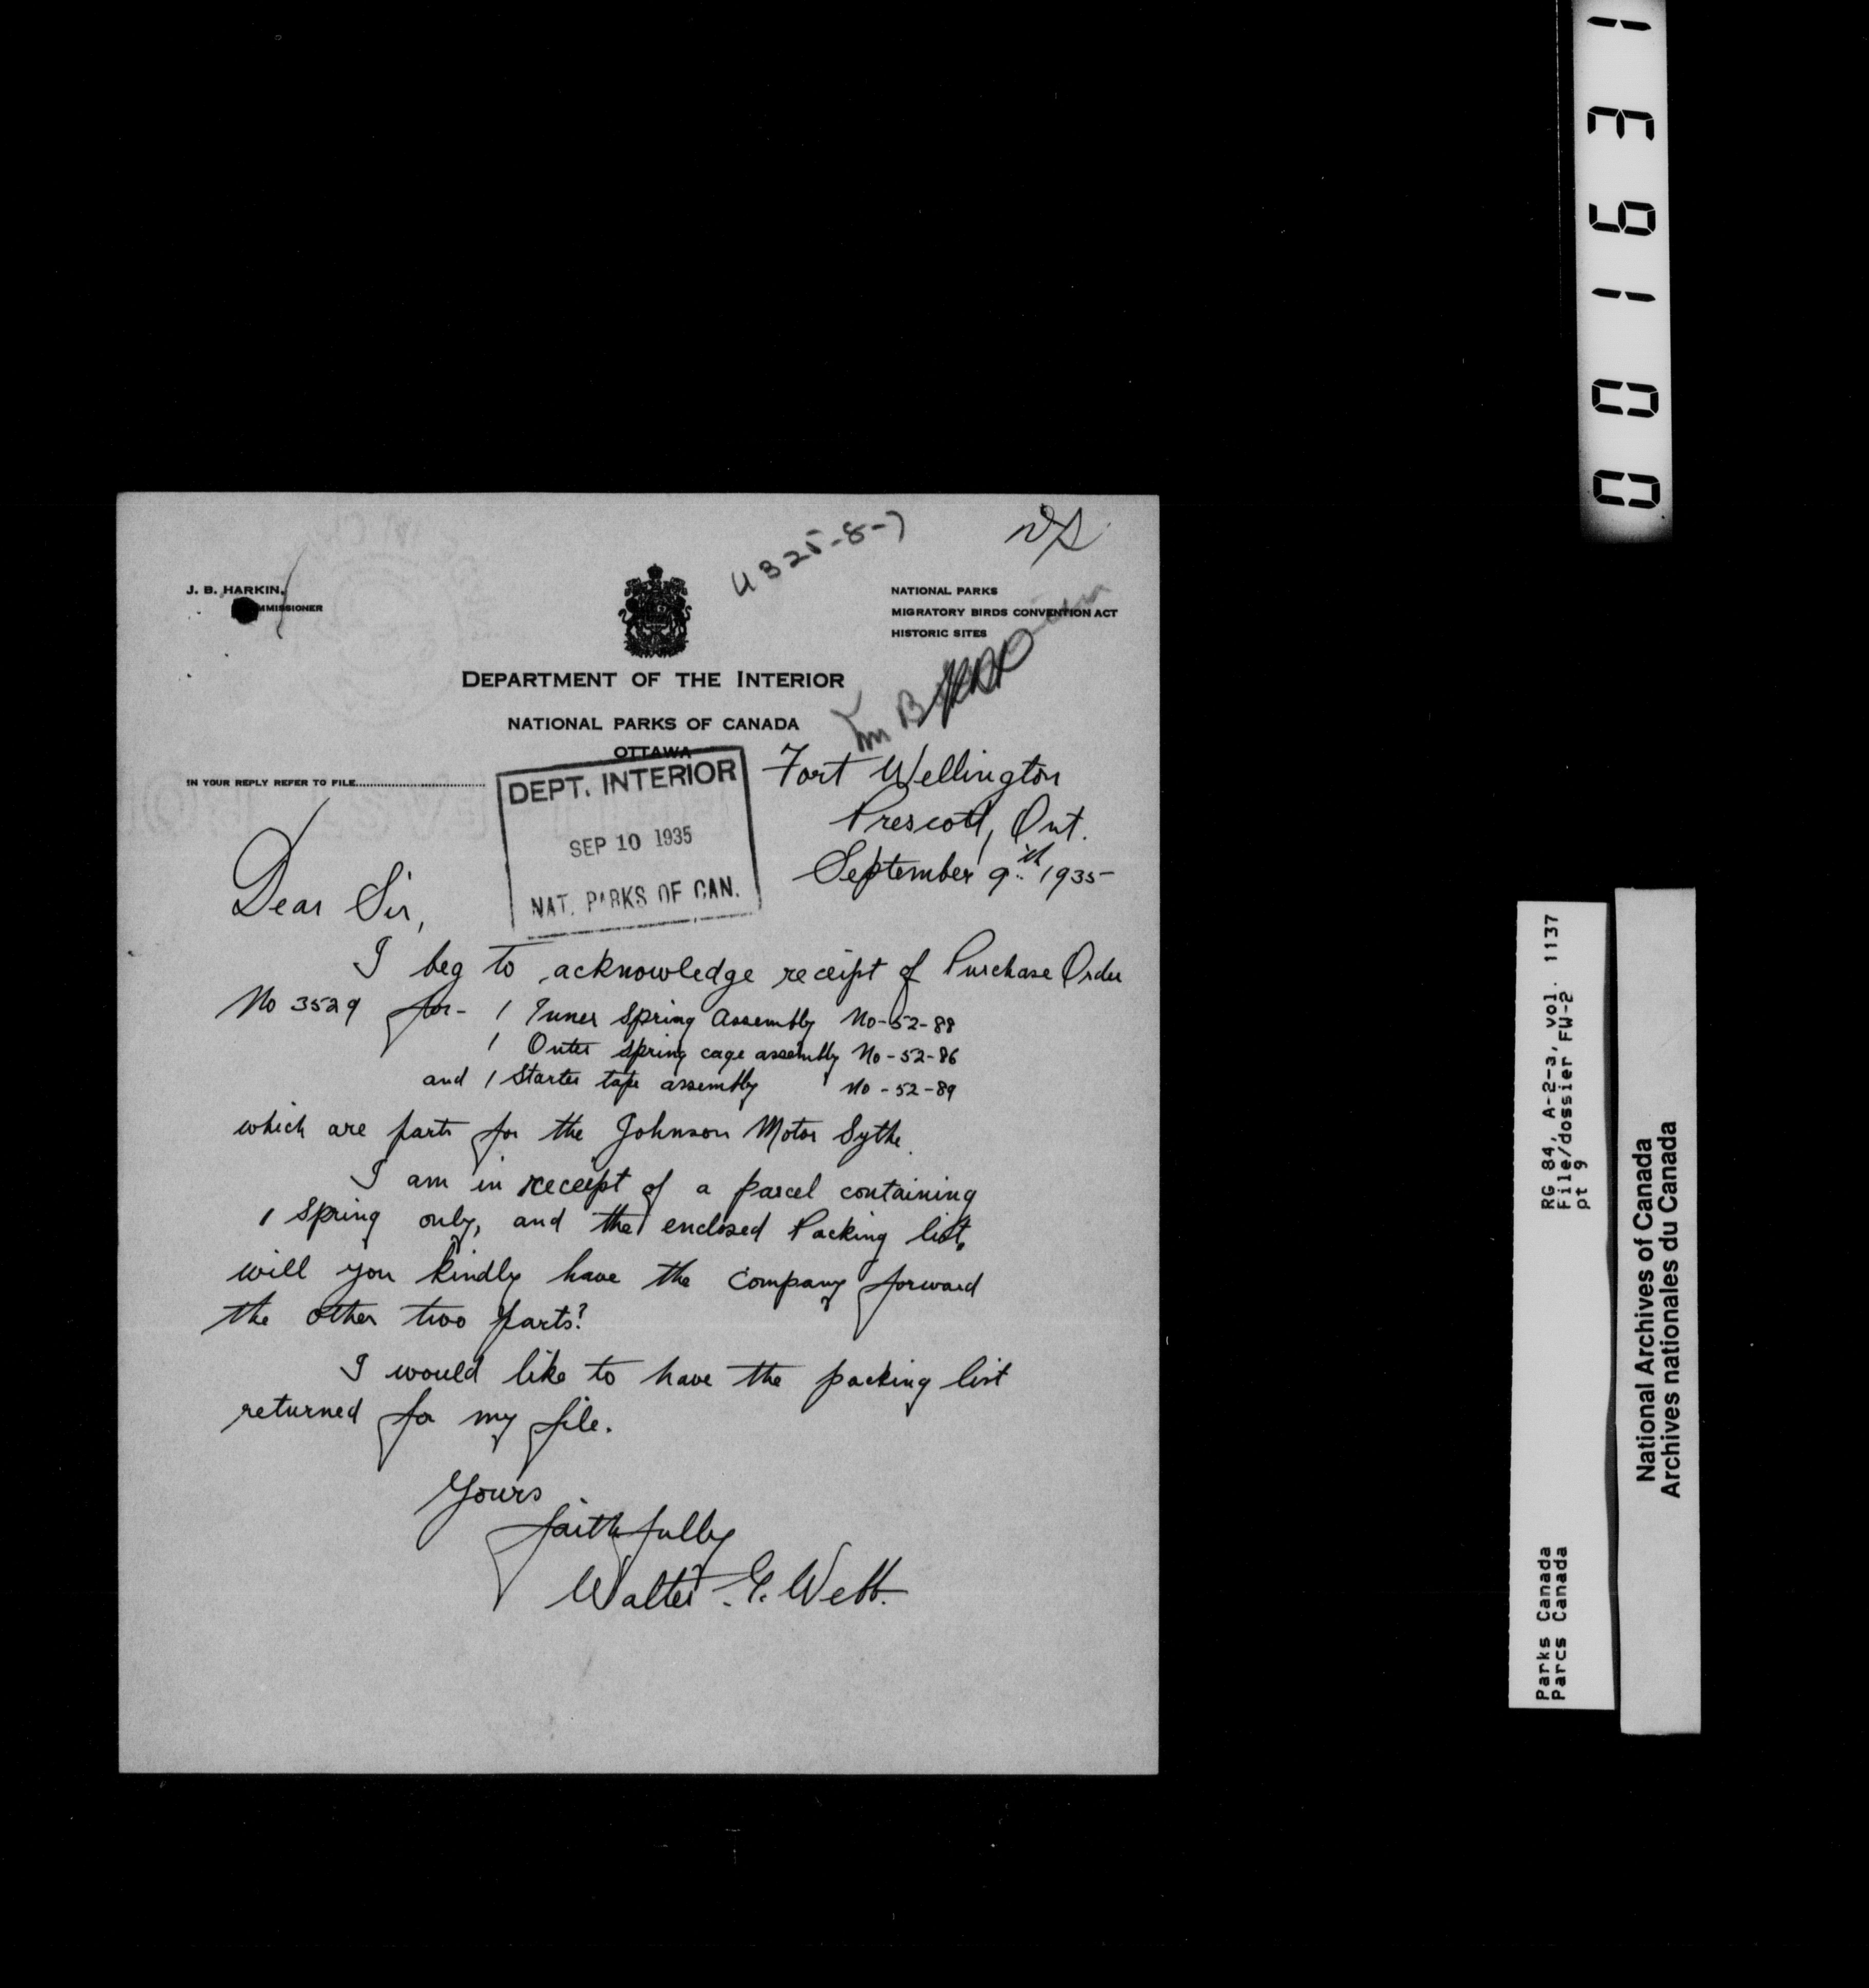 001631
U325-8-7
J. B. HARKIN,
MMISSIONER
NATIONAL PARKS
MIGRATORY BIRDS CONVENTION ACT
HISTORIC SITES
DEPARTMENT OF THE INTERIOR
NATIONAL PARKS OF CANADA
OTTAWA
IN YOUR REPLY REFER TO FILE
DEPT. INTERIOR
SEP 10 1935
NAT. PARKS OF CAN.
Fort Wellington
Prescott, Ont.
September 9th 1935
Dear Sir,
I beg to acknowledge receipt of Purchase Order
No 3529 for- 1 Inner Spring Assembly No-52-88
1 Outer Spring cage assembly No-52-86
and 1 Starter tape assembly No-52-89
which are parts for the Johnson Motor Sythe.
I am in receipt of a parcel containing
1 Spring only, and the enclosed Packing list,
will you kindly have the Company forward
the other two parts?
I would like to have the packing list
returned for my file.
Yours
faithfully
Walter G. Webb.
RG 84, A-2-3, vol. 1137
File/dossier FW-2
pt 9
Parks Canada
Parcs Canada
National Archives of Canada
Archives nationales du Canada